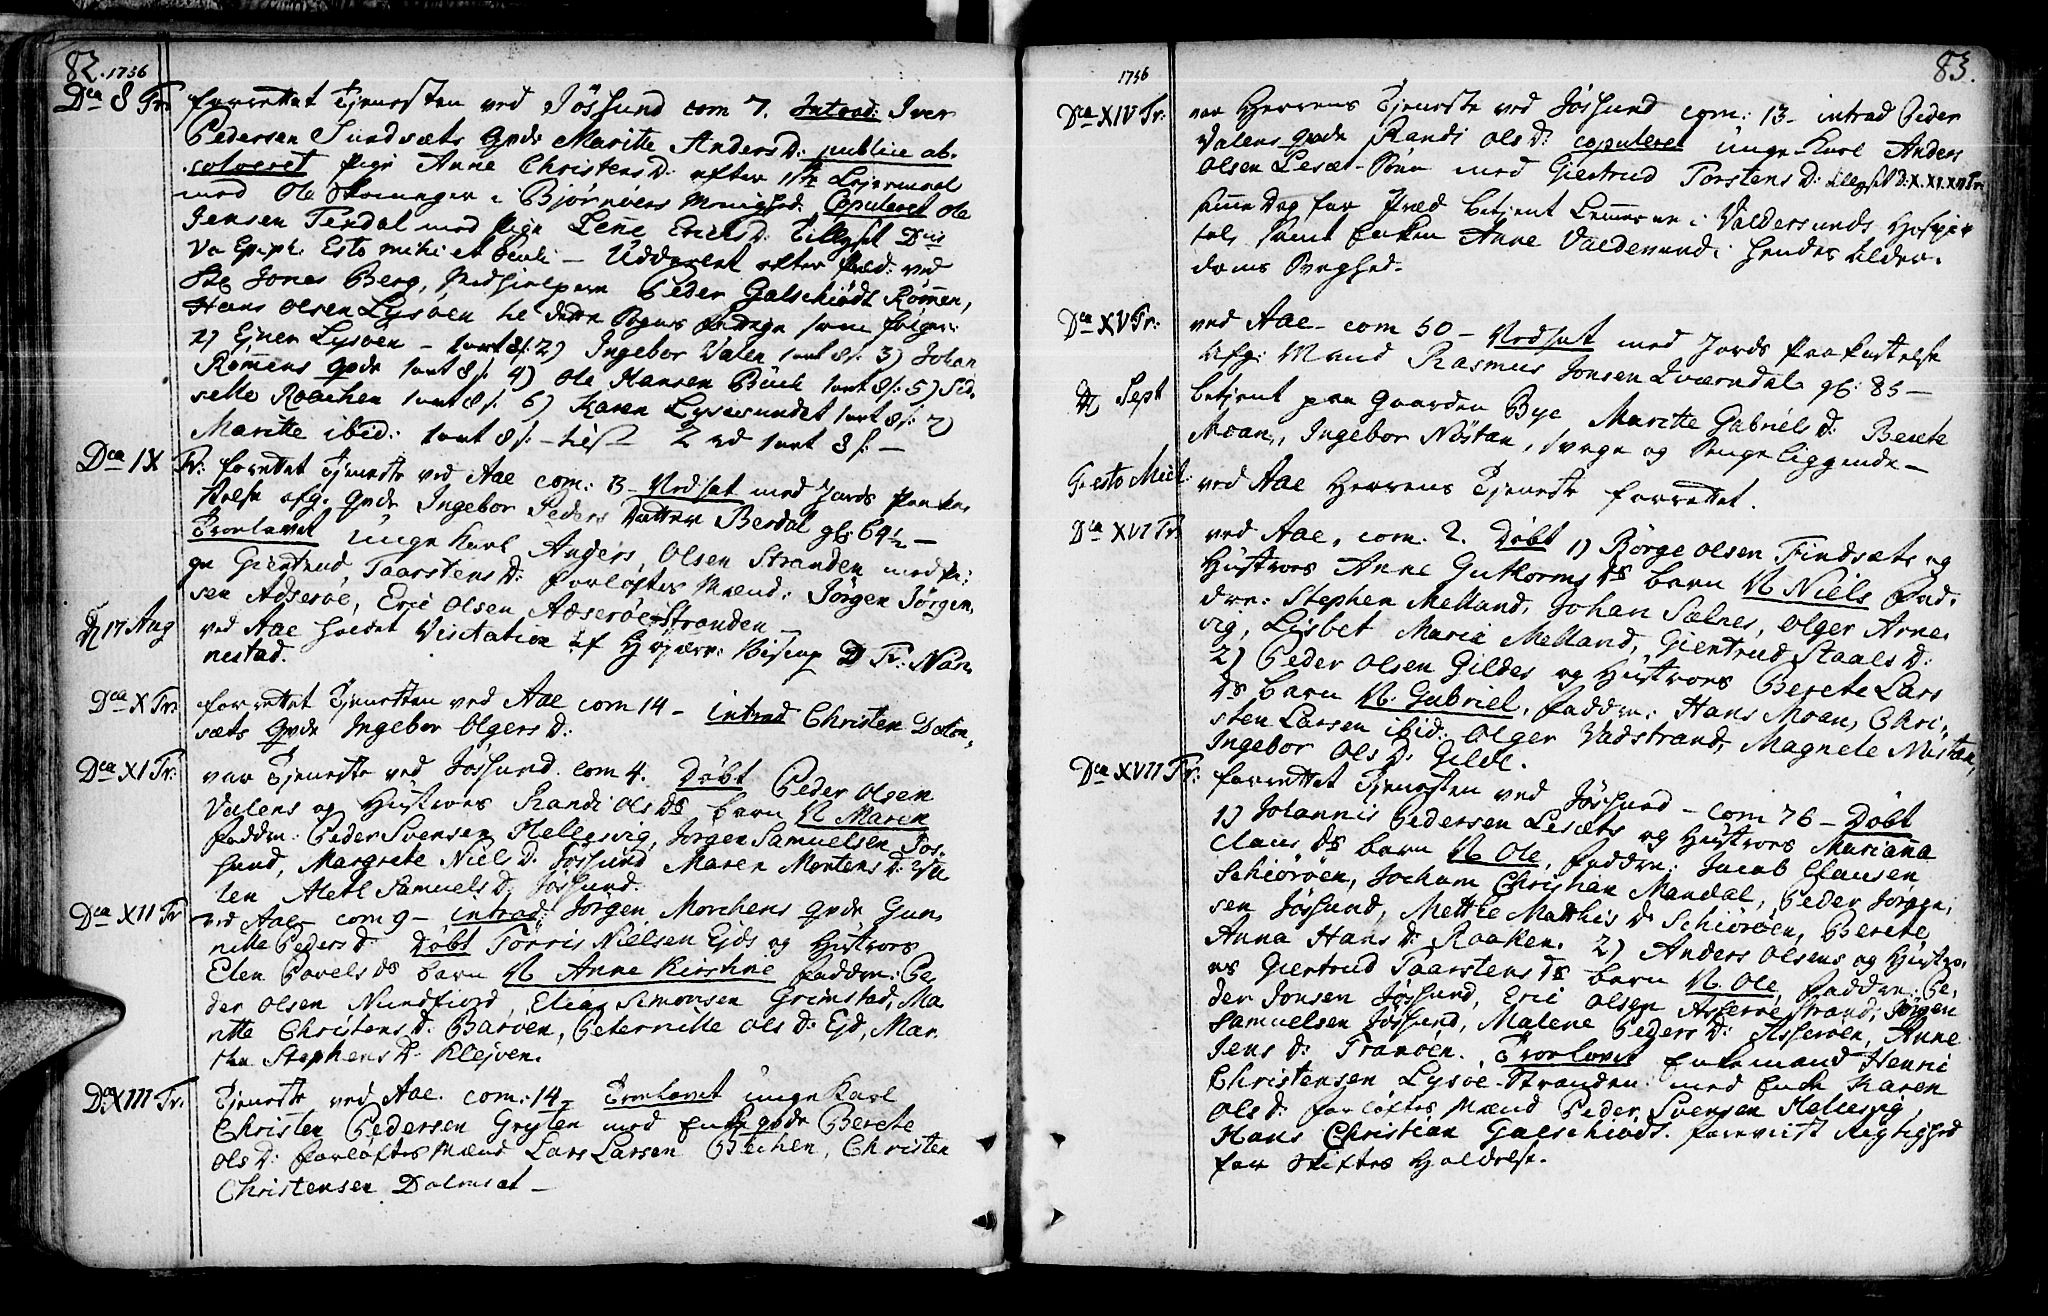 82. 1756
Dca 8 Tr: forrettet Tjenesten ved Jössund com 7. Introd: Iver
Pedersen Sundsæts qvde Maritte Anders D: publice ab-
solveret pige Anne Christens D: efter 1ste Lejermaal
med Ole Skomager i Bjørnöers Menighed. Copuleret Ole
Jensen Terdal med pige Lene Erics D: Tillyset Dnis
V a Epiph. Esto mihi et - Uddeelt efter Præd: ved
Jonas Berg, Medhielpere Peder Galschiødt Römen,
Hans Olsen Lysöen til dette Sogns som følger:
1) Ejner Lysöen - 1 ort 8 s: 2) Ingebor Valen 1 ort 8 s: 3) Johan
Römens qvde 1 ort 8 s: 4) Ole Hansen 1 ort 8 s: 5) Sid-
selle Raachen 1 ort 8 s: 6) Karen Lysesundet 1 ort 8 s: 7)
Maritte ibid: 1 ort 8 s: - 2 rd 1 ort 8 s: -
Dca IX Tr: forrettet Tjeneste ved Aae com: 13 - Nedsat med Jords Paaka-
stelse afg. qvde Ingebor Peders Datter Berdal gl: 69½ -
Trolovet unge Karl Anders Olsen Stranden med Pi-
ge Giertrud Taarstens D: Forløftes Mænd: Jörgen Jörgen-
sen Adseröe, Eric Olsen Adseröe-Stranden
17 Aug ved Aae holdet Visitation af Höjærv: Biscop D Fr: Nan-
nestad.
Dca X Tr: forrettet Tjenesten ved Aae com 14 - introd Christen Dolm-
sæts qvde Ingebor Olgers D:
Dca XI Tr: var Tjeneste ved Jössund. com 4. Döbt Peder Olsen
Valens og Hustroes Randi Ols Ds barn N Maren
faddre: Peder Svensen Hellesvig, Jörgen Samuelsen Jös-
sund, Margrete Niels D. Jössund Maren Mortens D: Va-
len Aletl Samuels D. Jössund.
Dca XII Tr ved Aae - com 9 - introd: Jörgen Morchens qvde Gun-
nille Peders D: Döbt Törris Nielsen Ejds og Hustroes
Elen Povels Ds barn N Anne Kirstine faddre: Pe-
der Olsen Nundfiord, Elias Simonsen Grimstad, Ma-
ritte Christens D. Barven, Peternille Ols D: Ejd, Mar-
the Stephens D. Klejven.
Dca XIII Tr: Tjeneste ved Aae. com: 14 - Trolovet unge Karl
Christen Pedersen Gryten med Enke qvde Berete
Ols D: forløftes Mænd Lars Larsen Bechen, Christen
Christensen Dolmsæt -
1756 83.
Dca XIV Tr: var Herrens Tjeneste ved Jössund com: 13 - introd Peder
Valens qvde Randi Ols D: copuleret unge Karl Anders
Olsen Lesæt - med Giertrud Torstens D: tillyset D: X. XI. XII Tr:
samme Dag for Præd betjent Lemmerne i Valdersunds Hospi-
tal, samt Enken Anne Valdersund i hendes Alder-
doms Svaghed.
Dca XV Tr: ved Aae - com 50 - Nedsat med Jords Paakastelse
afg: Mand Rasmus Jonsen Qværndal gl: 85 -
Sept betjent paa Gaarden Bye Maritte Gabriels D: Berete
Moan, Ingebor Nöstan, svage og Sengeliggende -
Festo Mich: ved Aae Herrens Tjeneste forrettet.
Dca XVI Tr: ved Aae, com. 2. Döbt 1) Börge Olsen Findsæts og
Hustroes Anne Guthorms Ds barn N Niels fad-
dre: Stephen Melland, Johan Sælnes, Olger Arne-
vig, Lisbet Maria Melland, Giertrud Staals D:
2) Peder Olsen Gildes og Hustroes Berete Lars
Ds barn N. Gabriel, faddre: Hans Moan, Chri-
sten Larsen ibid: Olger Vadstrand, Magnele Nöstan,
Ingebor Ols D: Gilde.
Dca XVII Tr: forrettet Tjenesten ved Jössund - com 76 - Döbt
1) Johannis Pedersen Lesæts og Hustroes Marianna
Claus Ds barn N Ole, faddre: Jacob Clausen
Schiöröen, Jochum Christian Mandal, Peder Jörgen-
sen Jössund, Mette Matthis D. Schiöröen, Berete
Anna Hans D: Raaken. 2) Anders Olsens og Hustro-
es Giertrud Taarstens Ds barn N. Ole, faddre: Pe-
der Jonsen Jössund, Eric Olsen Asseröe Strand, Jörgen
Samuelsen Jössund, Malene Peders D: Asseröen, Anne
Jens D: Tranöen. Trolovet Enkemand Henric
Christensen Lysöe-Stranden med Enke Karen
Ols D. forløftes Mænd Peder Svensen Hellesvig,
Hans Christian Galschiödt. foreviist Rigtighed
for Skiftes Holdelse.